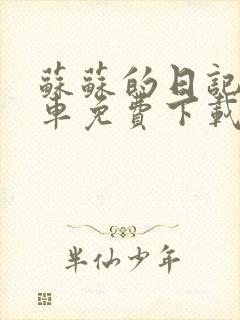 蘇蘇的日記
車免費下載
半仙少年